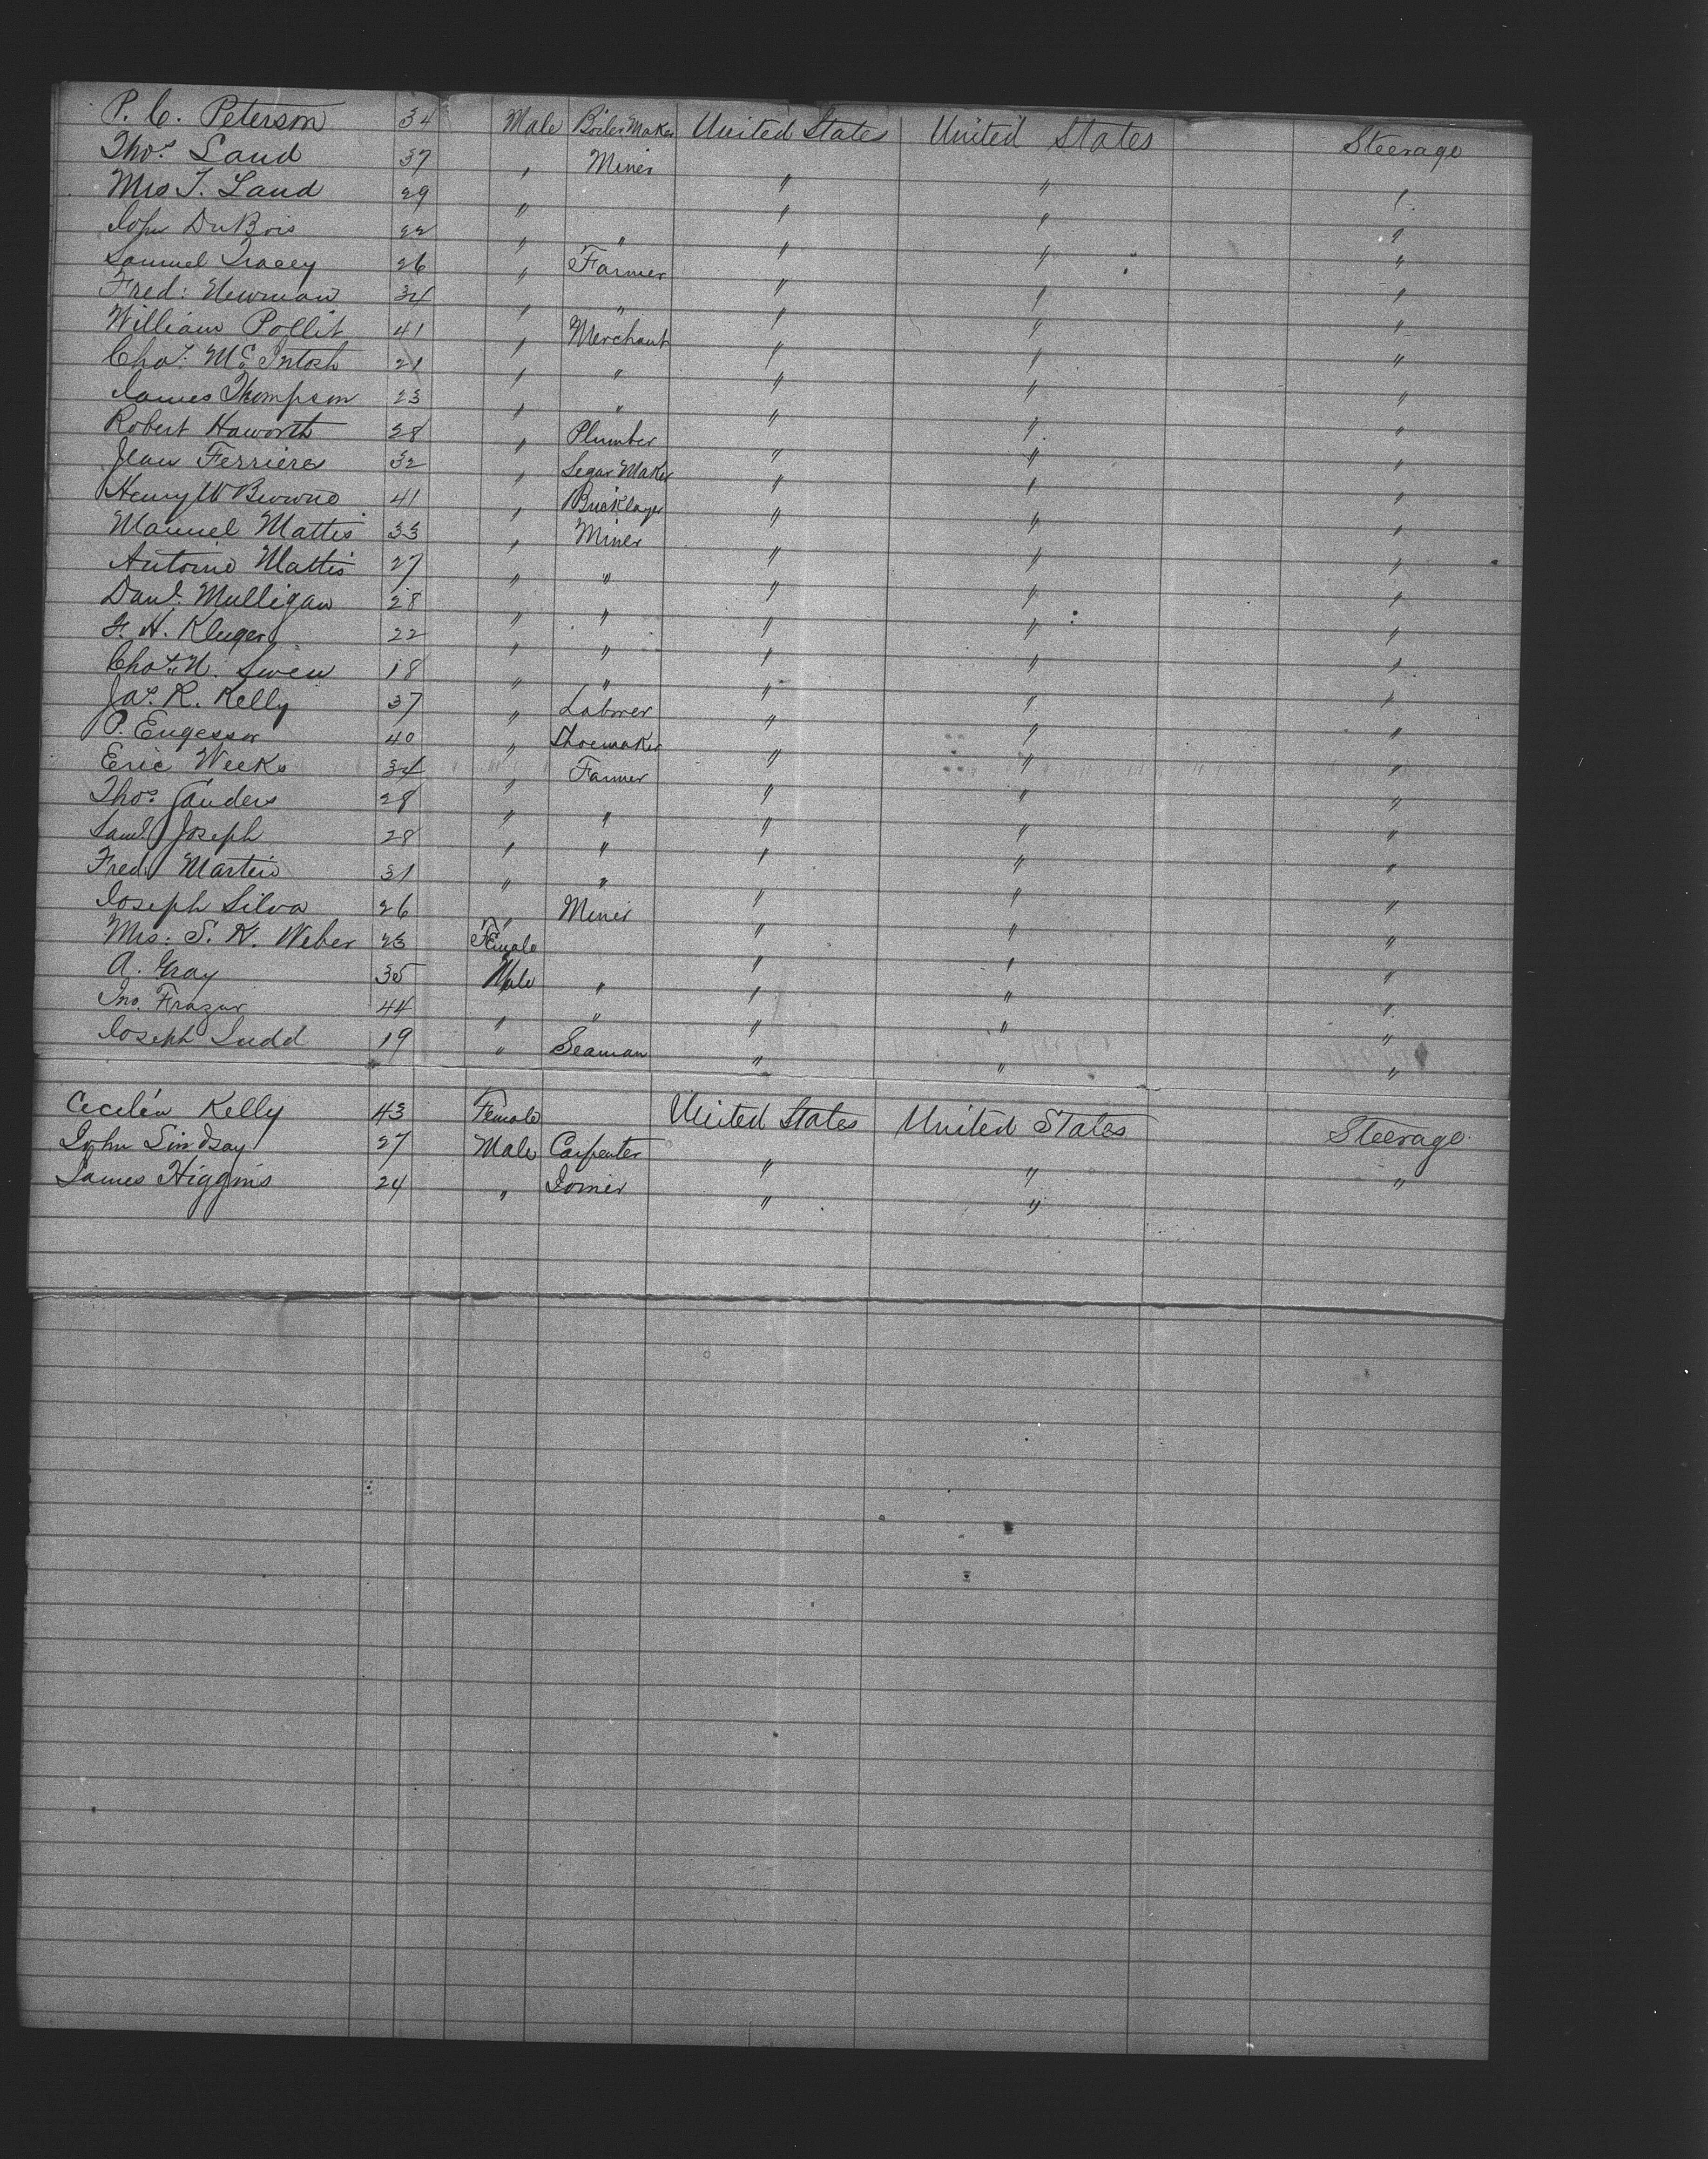 P. C. Peterson 34 Male Boiler Maker United States United States Steerage
Thos. Land 37 " Miner " " "
Mrs T. Land 29 " " " "
John DuBois 22 " " " " "
Samuel Tracey 26 " Farmer " " "
Fred: Newman 34 " " " " "
William Pollit 41 " Merchant " " "
Chas. McIntosh 21 " " " " "
James Thompson 23 " " " " "
Robert Haworth 28 " Plumber " " "
Jean Ferriere 32 " Segar Maker " " "
Henry W 41 " Bricklayer " " "
Manuel Mattis 33 " Miner " " "
Antoine Mattis 27 " " " " "
Danl. Mulligan 28 " " " " "
H. Kluger 22 " " " " "
Chas. N. Swen 18 " " " " "
Jas. R. Kelly 37 " Laborer " " "
P. Engessor 40 " Shoemaker " " "
Eric Weeks 34 " Farmer " " "
Thos. Sanders 28 " " " " "
Saml. Joseph 28 " " " " "
Fred. Martin 31 " " " " "
Joseph Silva 26 " Miner " " "
Mrs. S. K. Weber 23 Female " " "
A. Gray 35 Male " " " "
Jno. Frazur 44 " " " " "
Joseph Judd 19 " Seaman " " "
Cecelia Kelly 43 Female United States United States Steerage
John Lindsay 27 Male Carpenter " " "
James Higgins 24 " Joiner " "